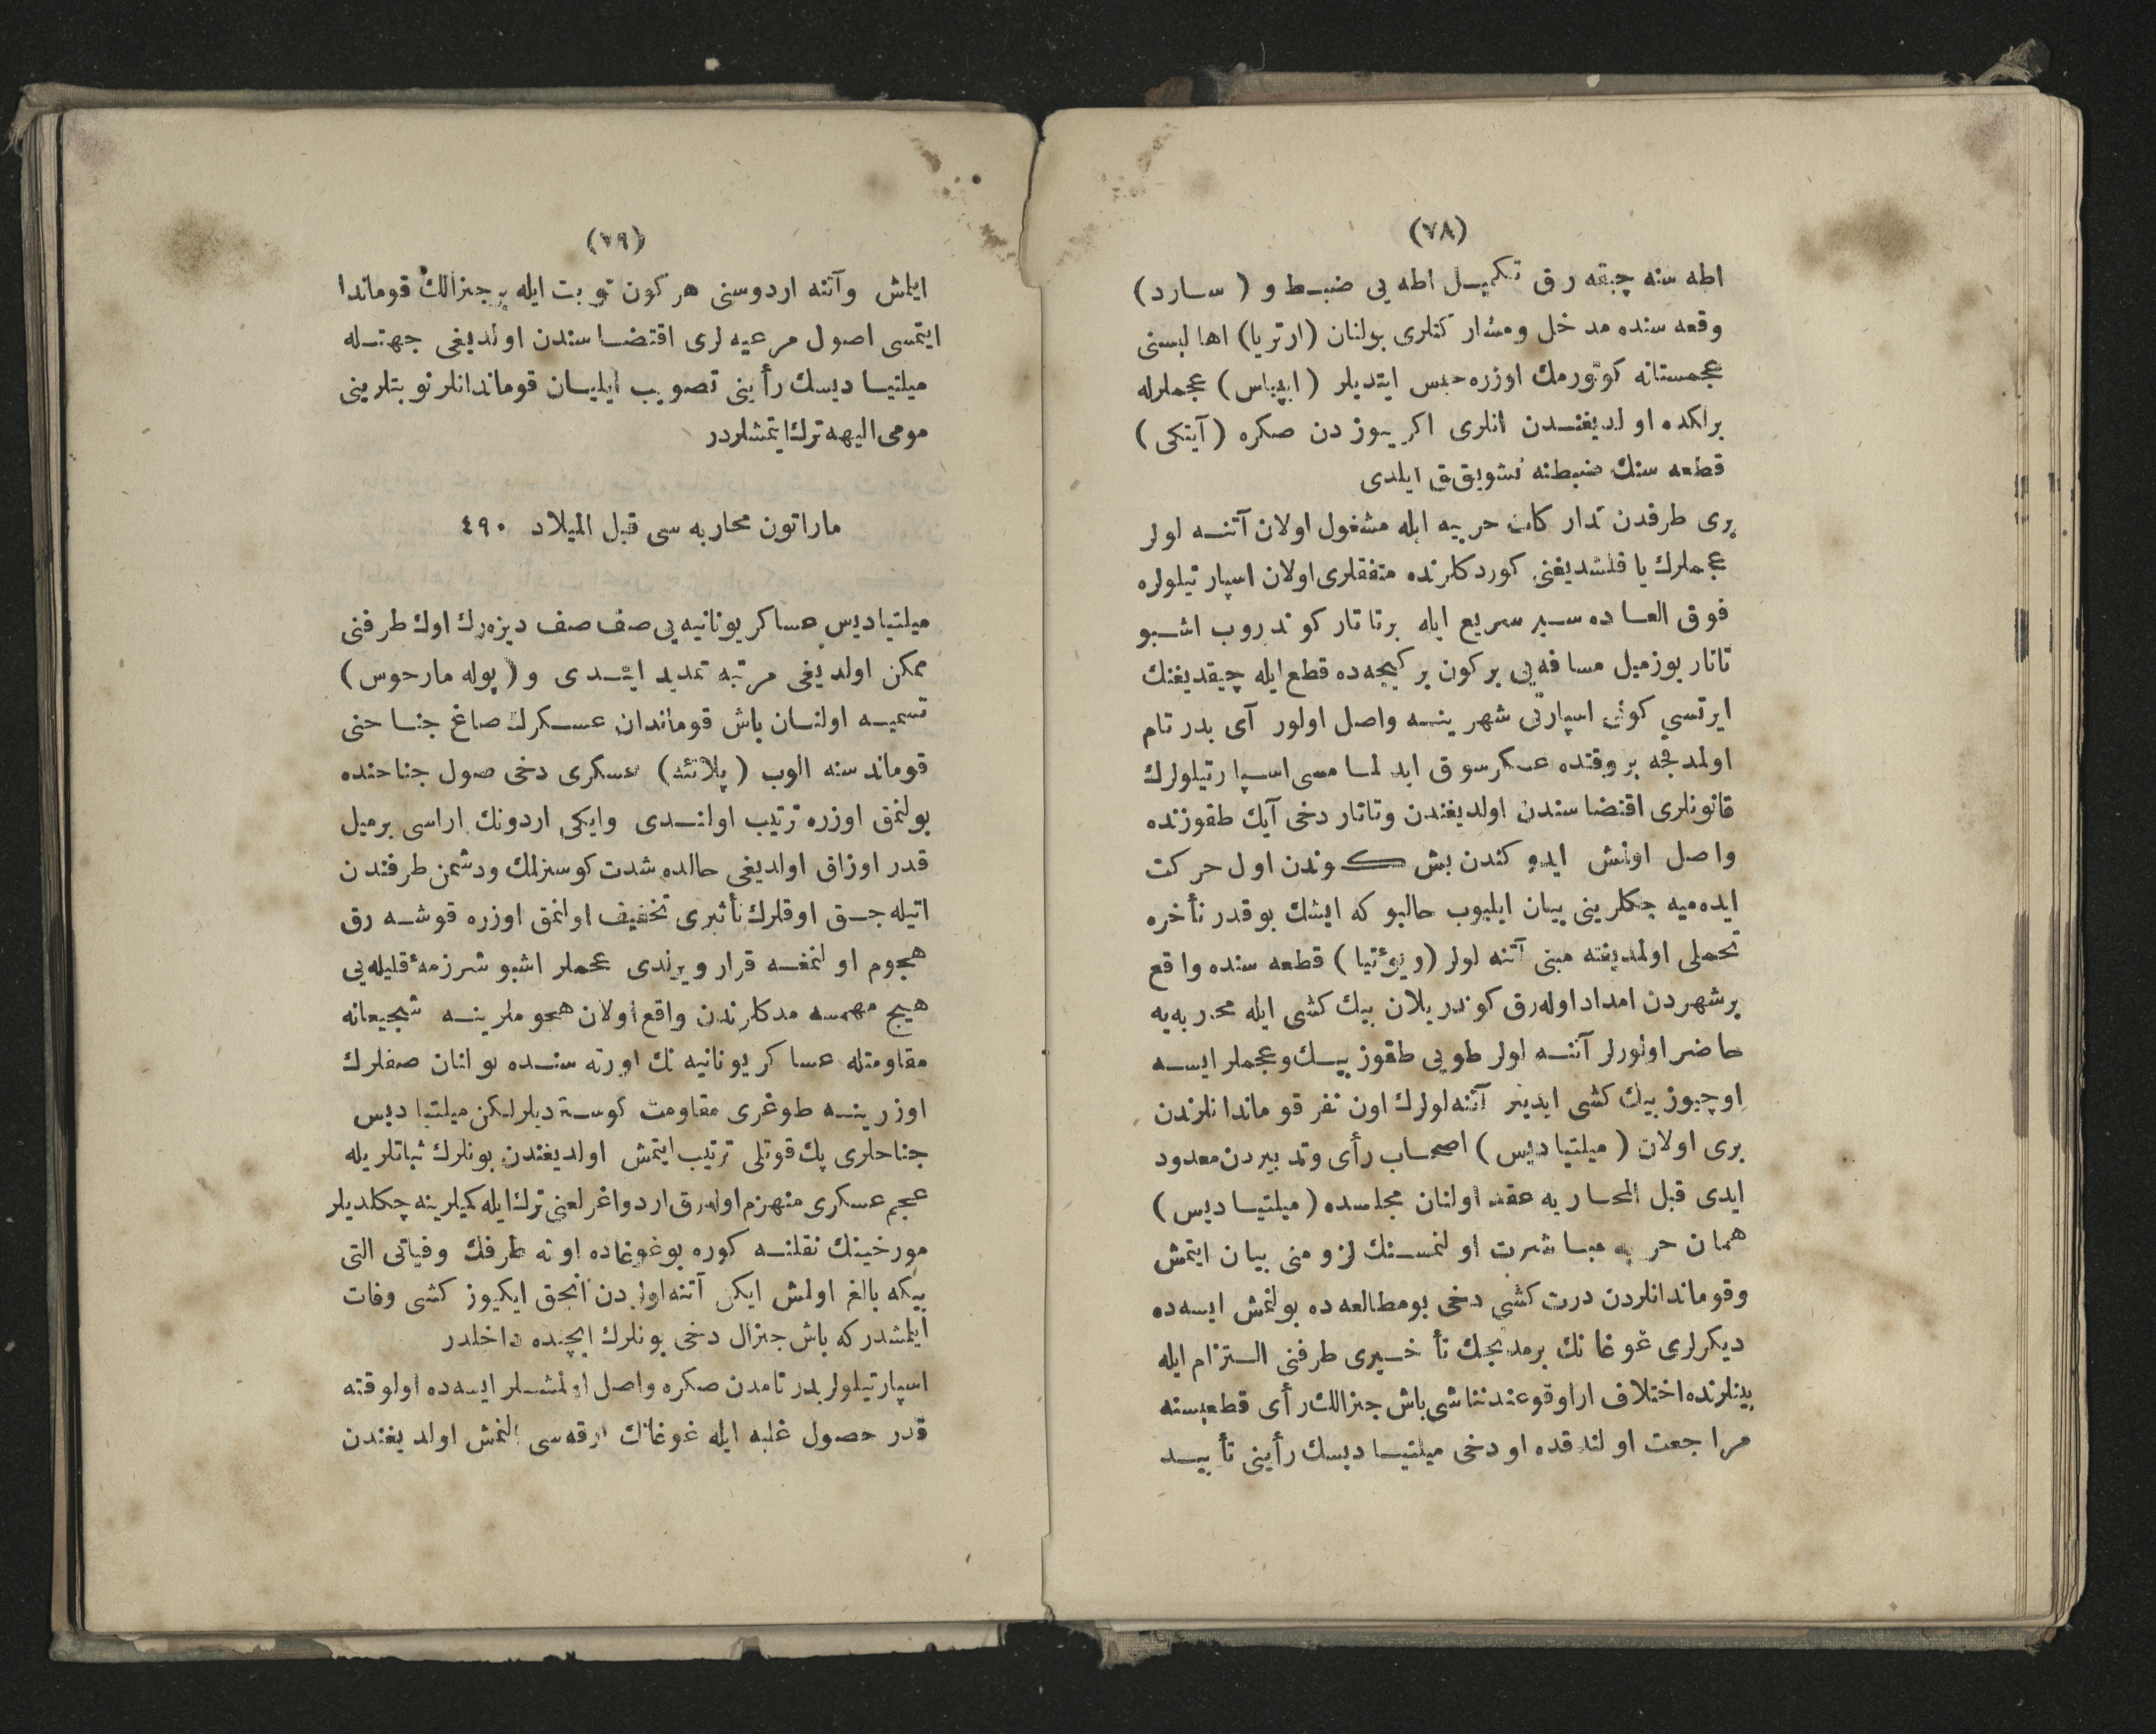 (٧٨)
اطه سنه چيقه رق تكميل اطه يى ضبط و (سارد)
وقعه سنده مدخل ومشاركتلرى بولنان (ارتريا) اهاليسنى
عجمستانه كوتورمك اوزره حبس ايتديلر (ايپياس) عجملرله
برلكده اولديغندن انلرى اكريبوزدن صكره (آيتكى)
قطعه سنك ضبطنه تشويق ايلدى
برى طرفدن تداركات حربيه ايله مشغول اولان آتنه لولر
عجملرك ياقلشديغنى كوردكلرنده متفقلرى اولان اسپارتيلولره
فوق العاده سير سريع ايله برتاتار كوندروب اشبو
تاتار يوزميل مسافه يى بركون بر كيجه ده قطع ايله چيقديغنك
ايرتسي كونى اسپارتى شهرينه واصل اولور آى بدر تام
اولمدقجه بروقتده عسكرسوق ايدلمامسى اسپارتيلولرك
قانونلرى اقتضاسندن اولديغندن وتاتار دخى آيك طقوزنده
واصل اولمش ايدوكندن بش كوندن اول حركت
ايده ميه جكلرينى بيان ايليوب حالبو كه ايشك بوقدر تأخره
تحملى اولمديغنه مبنى آتنه لولر (ويؤتيا) قطعه سنده واقع
برشهردن امداد اوله رق كوندريلان بيك كشى ايله محاربه يه
حاضر اولورلر آتنه لولر طوپى طقوز بيك وعجملر ايسه
اوچيوز بيك كشى ايدينر آتنه لولرك اون نفر قوماندانلرندن
برى اولان (ميلتياديس) اصحاب رأى وتدبيردن معدود
ايدى قبل المحاربه عقد اولنان مجلسده (ميلتياديس)
همان حربه مباشرت اولنمسنك لزومنى بيان ايتمش
وقوماندانلردن درت كشى دخى بومطالعه ده بولنمش ايسه ده
ديكرلرى غوغانك برمدتجك تأخيرى طرفنى التزام ايله
بينلرنده اختلاف اراوقوعندنناشى باش جنرالك رأى قطعيسنه
مراجعت اولندقده اودخى ميلتياديسك رأينى تأييد
(٧٩)
ايلمش وآتنه اردوسنى هركون نوبت ايله برجنرالك قوماندا
ايتمسى اصول مرعيه لرى اقتضاسندن اولديغى جهتله
ميلتياديسك رأينى تصويب ايليان قوماندانلر نوبتلرينى
مومى اليهه ترك ايتمشلردر
ماراتون محاربه سى قبل الميلاد ٤٩٠
ميلتياديس عساكر يونانيه يى صف صف ديزه رك اوك طرفنى
ممكن اولديغى مرتبه تمديد ايتدى و (پوله مارحوس)
تسميه اولنان باش قوماندان عسكرك صاغ جناحنى
قوماندسنه الوب (پلاتئه) عسكرى دخى صول جناحنده
بولنمق اوزره ترتيب اولندى وايكى اردونك اراسى برميل
قدر اوزاق اولديغى حالده شدت كوسترلمك ودشمن طرفندن
اتيله جق اوقلرك تأثيرى تخفيف اولنمق اوزره قوشه رق
هجوم اولنمغه قرار ويرلدى عجملر اشبو شرزمهٔ قليله يى
هيچ مهمسه مدكلرندن واقع اولان هجوملرينه شجيعانه
مقاومتله عساكر يونانيه نك اورته سنده بولنان صفلرك
اوزرينه طوغرى مقاومت كوسترديلرليكن ميلتياديس
جناحلرى پك قوتلى ترتيب ايتمش اولديغندن بونلرك ثباتلريله
عجم عسكرى منهزم اوله رق اردواغرلغنى ترك ايله كميلرينه چكلديلر
مورخينك نقلنه كوره بوغوغاده اوته طرفك وفياتى التى
بيكه بالغ اولمش ايكن آتنه لولردن انجق ايكيوز كشى وفات
ايلمشدركه باش جنرال دخى بونلرك ايچنده داخلدر
اسپارتيلولر بدر تامدن صكره واصل اولمشلر ايسه ده اولوقته
قدر حصول غلبه ايله غوغانك ارقه سى النمش اولديغندن